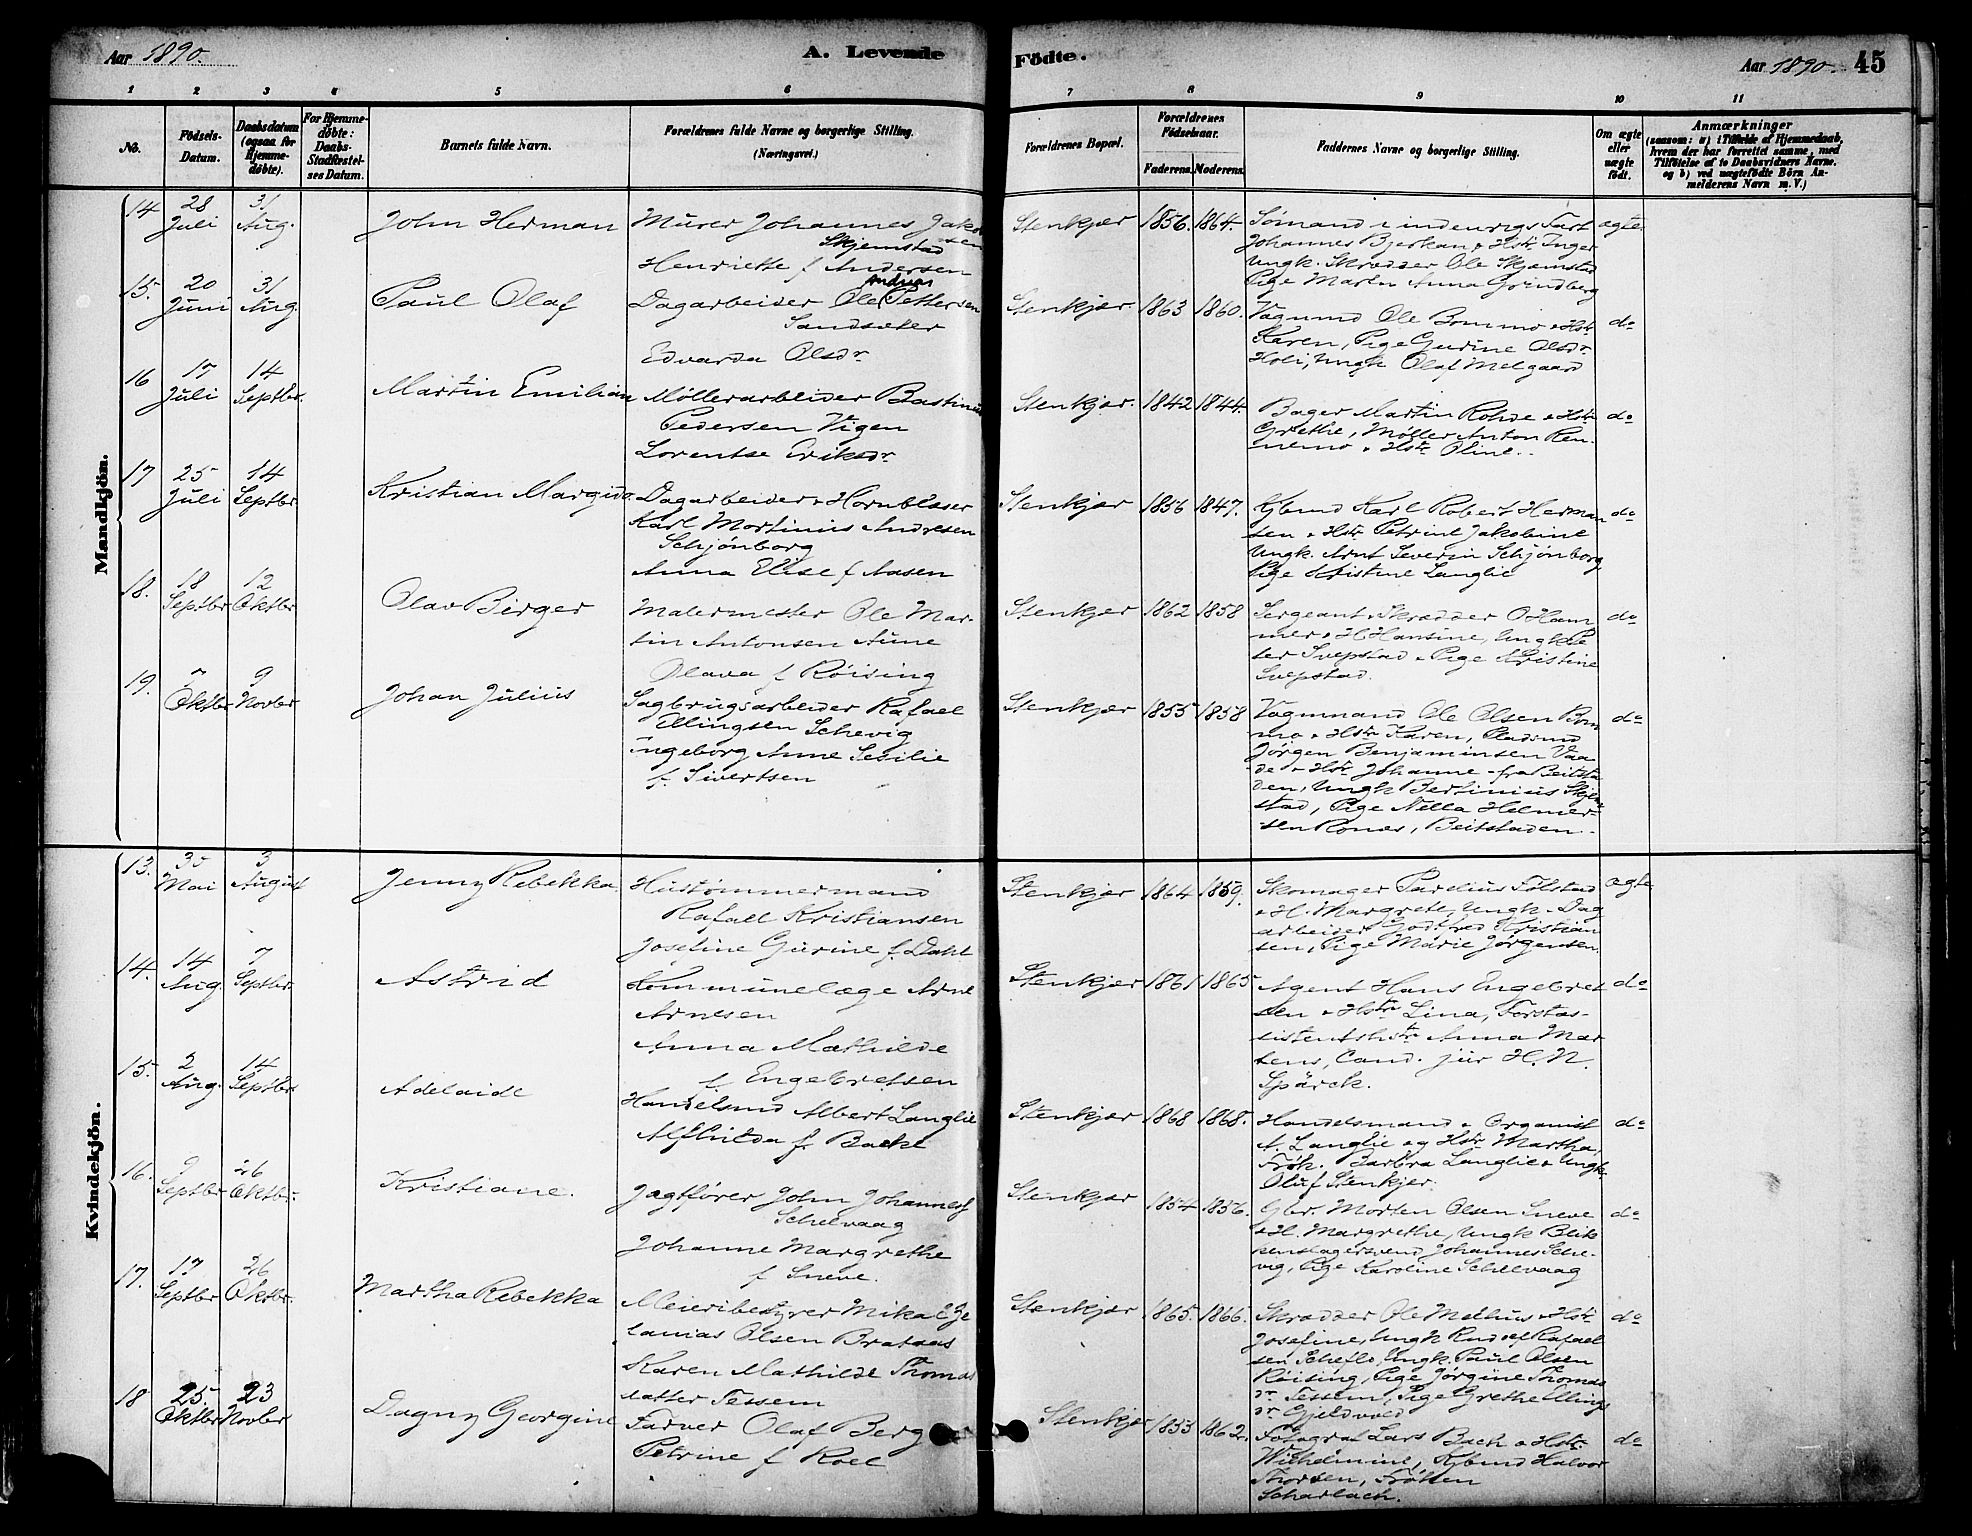 Aar 1890.
A. Levende
Fødte.
Aar 1890. 45
1 2 3 4 5 6 7 8 9 10 11
No.
Fødsels-Datum.
Daabsdatum (ogsaa for Hjemmedøbte).
For Hjemmedøbte: Daabs-Stadfæstelses Datum.
Barnets fulde Navn.
Forældrenes fulde Navne og borgerlige Stilling. (Næringsvei.)
Forældrenes Bopæl.
Forældrenes Fødselsaar.
Faderens. Moderens.
Faddernes Navne og borgerlige Stilling.
Om ægte eller uægte født.
Anmærkninger
(saasom: a) i Tilfælde af Hjemmedaab, hvem der har forrettet samme, med Tilføielse af to Daabsvidners Navne. og b) ved uægtefødte Børn Anmelderens Navn m. V.)
Mandkjön.
14 28 Juli 31 Aug. John Herman
Murer Johannes Jakobsen
Skjemstad
Henriette f Andersen
Stenkjær 1856. 1864.
Sømand i indenrigs Fart
Johannes Bjerkan & Hstr. Inger
Ungk. Skrædder Ole Skjemstad
Pige Martn Anna Grundberg
ægte
15. 20 Juni 31 Aug. Paul Olaf
Dagarbeider Ole Andreas Pettersen
Sandsæter
Edvarda Olsdr
Stenkjær. 1863 1860.
Vognmd Ole Bommo & Hstr
Karen, Pige Gurine Olsdr
Holi, Ungk Olaf Melgaard
do
16 17 Juli 14 Septbr. Martin Emilian
Møllerarbeider Bastinus
Pedersen Vigen
Lorentse Eriksdr
Stenkjær. 1842 1844.
Bager Martin Rohde & Hstr
Grethe, Møller Anton Ren-
nemo & Hstr Oline.
do
17 25 Juli 14 Septbr. Kristian Margido
Dagarbeider & Hornblæser
Karl Mortinius Andresen
Schjønborg
Anna Elise f Aasen
Stenkjær 1856 1847.
Gbmd Karl Robert Herman
sen & Hstr Petrine Jakobine
Ungk. Arnt Severin Schjønborg
Pige Kristine Langlie
do
18. 18 Septbr 12 Oktbr Olav Birger
Malermester Ole Mar-
tin Antonsen Aune
Olava f Røising
Stenkjær 1862 1858
Sergeant & Skrædder O Ham
mer & H Hansine, Ungk Pe
ter Svepstad & Pige Kristine
Svepstad.
do
19. 7 Oktbr 9 Novbr Johan Julius
Sagbrugsarbeider Rafael
Ellingsen Schevig
Ingeborg Anne Sesilie
f. Sivertsen
Stenkjær 1855 1858
Vognmand Ole Olsen Bom
mo & Hstr Karen, Pladsmd
Jørgen Benjaminsen Vaa
de & Hstr Johanne fra Beitsta
den, Ungk Bertinius Skjem
stad, Pige Nella Helmer-
sen Rones, Beitstaden.
do
Kvindekjön.
13. 30 Mai 3 August Jenny Rebekka
Hustømmermand
Rafael Kristiansen
Josefine Gurine f. Dahl
Stenkjær 1864 1859.
Skomager Parelius Følstad
& H. Margrete, Ungk. Dag
arbeider Godtfred Kristian
sen, Pige Marie Jørgensen.
ægte
14. 14 Aug. 7 Septbr. Astrid
Kommunelæge Arne
Arnesen
Anna Mathilde
f. Engebretsen
Stenkjær 1861 1865
Agent Hans Engebret
sen & Hstr Lina, Forstas-
sistentshstr Anna Mar
tens, Cand. jur H. N.
Spärck.
do
15. 2 Aug. 14 Septbr Adelaide
Handelsmd Albert Langlie
Alfhilda f. Backe
Stenkjær 1868 1868.
Handelsmand & Organist
A. Langlie og Hstr Martha,
Frøk. Barbra Langlie & Ungk
Oluf Stenkjær.
do
16. 9 Septbr 26 Oktbr. Kristiane.
Jagtfører John Johannes
Schelvaag
Johanne Margrethe
f Sneve.
Stenkjær 1854 1856.
Gbr. Morten Olsen Sneve
& H. Margrethe, Ungk Blik
kenslagersvend Johannes Sche-
vig, Pige Karoline Schelvaag
do
17. 17 Septbr 26 Oktbr. Martha Rebekka
Meieribestyrer Mikal Ze
lanias Olsen Brataas
Karen Mathilde Thomas
datter Tessem
Stenkjær 1865. 1866.
Skrædder Ole Melhus & Hstr
Josefine, Ungk Rudolf Rafael
sen Scheflo, Ungk. Paul Olsen
Røising, Pige Jørgine Thomas
dr Tessem, Pige Grethe Ellings
dr Gjeldvold
do
18 25. Oktbr 23 Novbr Dagny Georgine
Farver Olaf Berg
Petrine f Roel
Stenkjær 1853 1862.
Fotograf Lars Bach & Hstr
Wilhelmine, Kjbmd Halvor
Thorsen, Frøken
Scharlach.
do